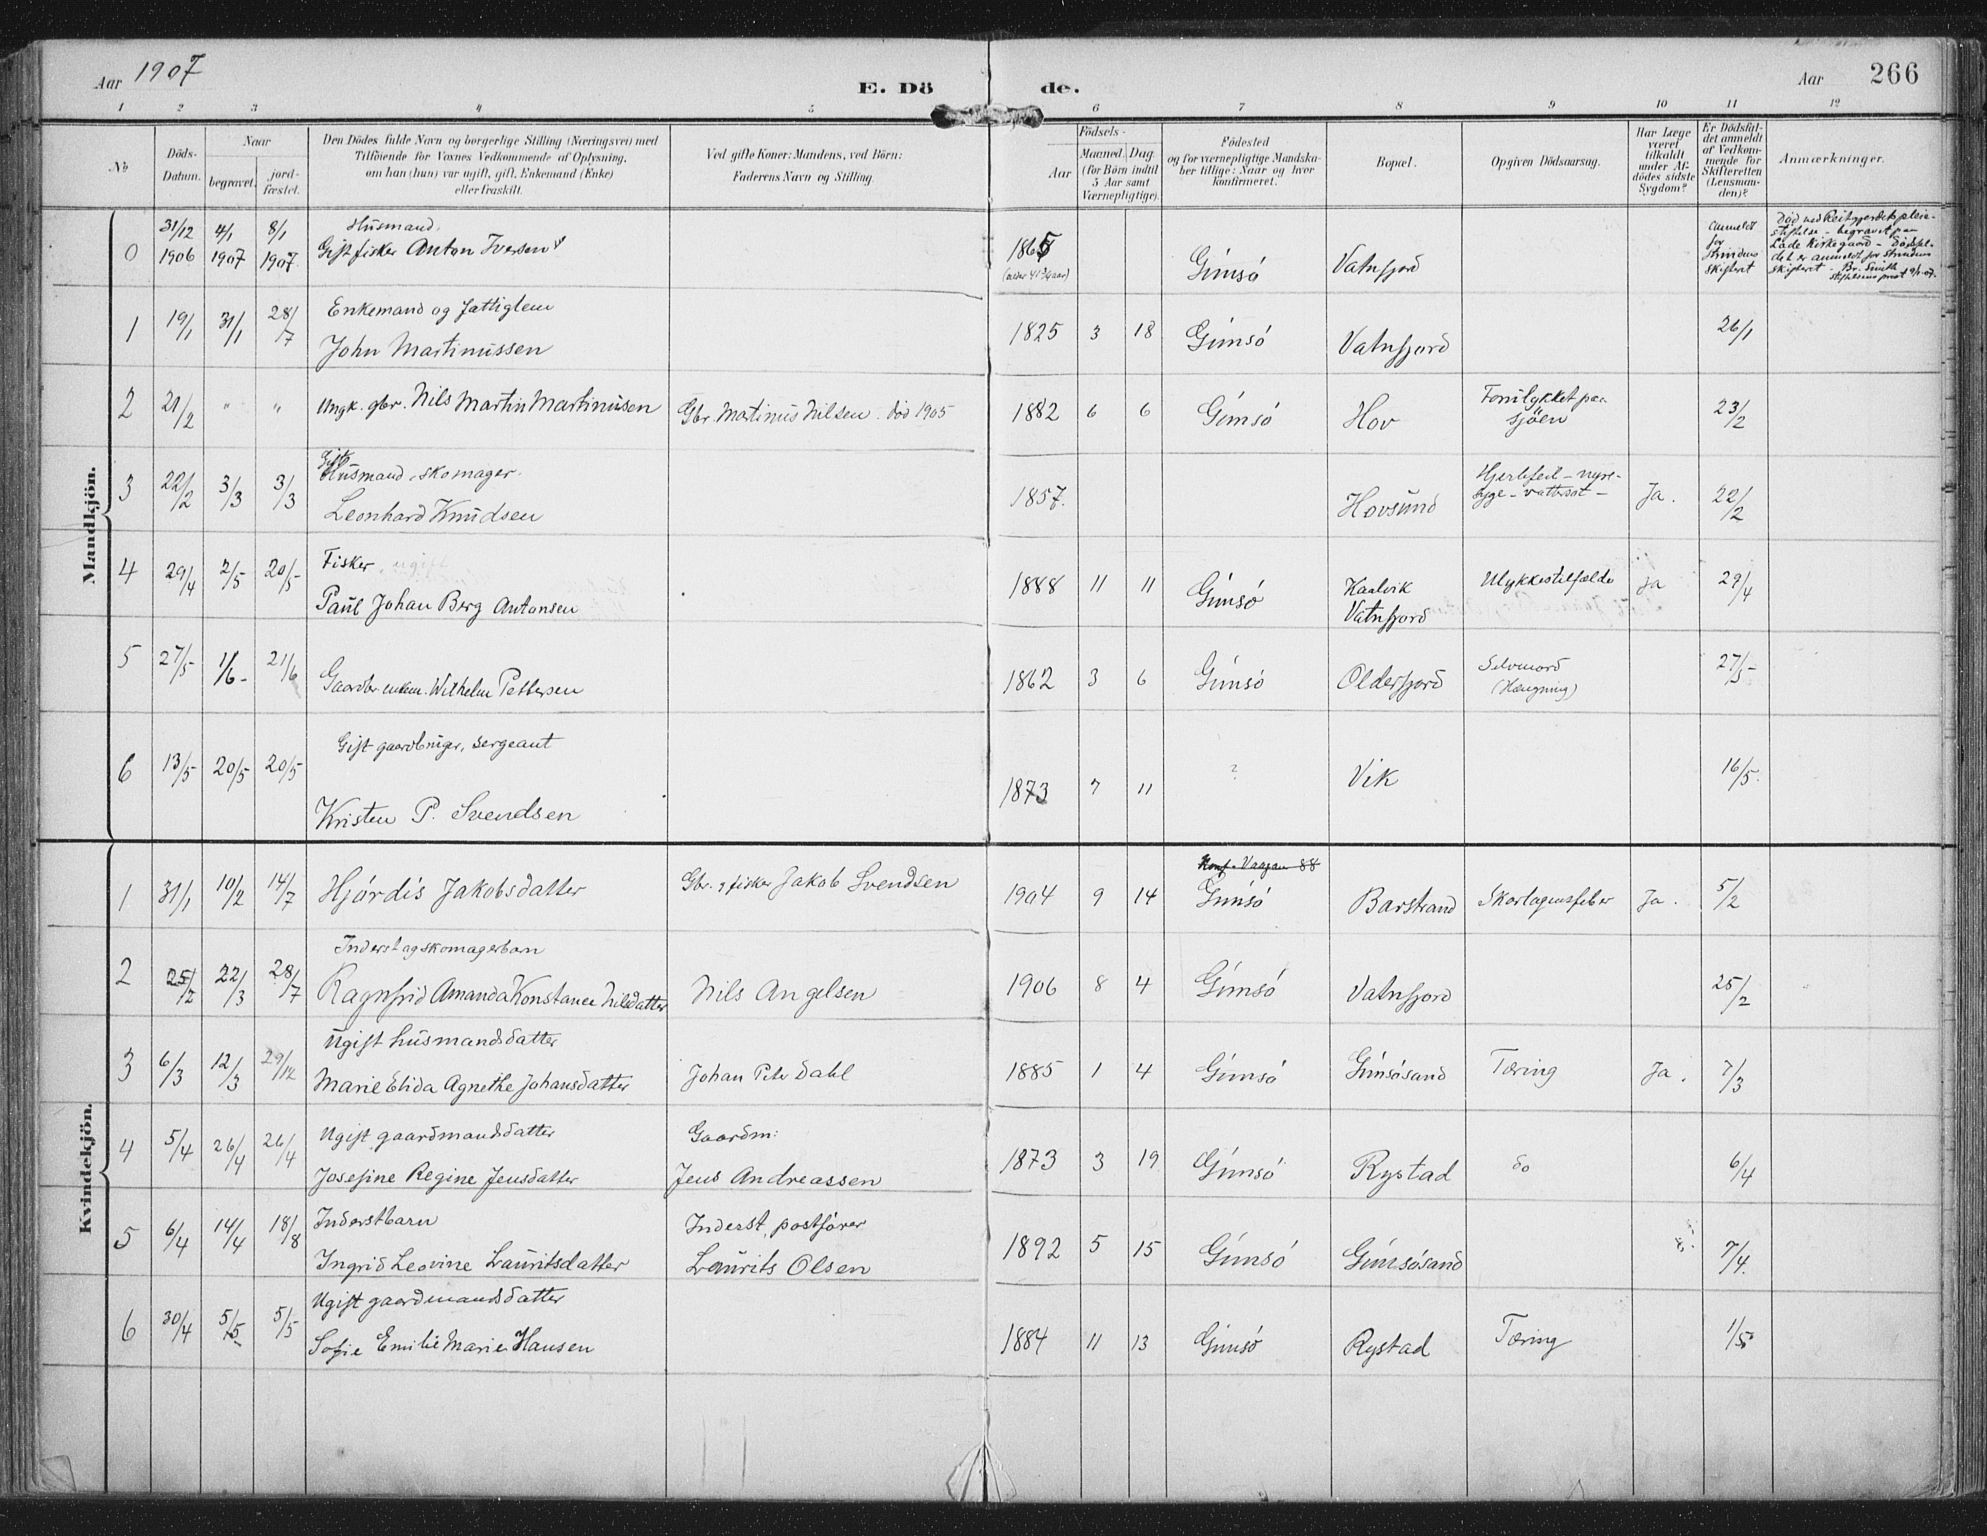 Aar 1907
E. Döde.
Aar 266
1 2 3 4 5 6 7 8 9 10 11 12
No
Döds-Datum.
Naar
begravet.
jord-fæstet.
Den Dödes fulde Navn og borgerlige Stilling (Næringsvei) med
Tilföiende for Voxnes Vedkommende af Oplysning,
om han (hun) var ugift, gift, Enkemand (Enke)
eller fraskilt.
Ved gifte Koner: Mandens, ved Börn:
Faderens Navn og Stilling.
Födsels-
Aar
Maaned. Dag.
(for Börn indtil
5 Aar samt
Værnepligtige).
Födested
og for værnepligtige Mandska-
ber tillige: Naar og hvor
konfirmeret.
Bopæl.
Opgiven Dödsaarsag.
Har Læge
været
tilkaldt
under Af-
dödes sidste
Sygdom?
Er Dödsfal-
det anmeldt
af Vedkom-
mende for
Skifteretten
(Lensman-
den)?
Anmærkninger.
Mandkjön.
0 31/12 1906 4/1 1907 8/1 1907 Husmand,
Gift fisker Anton Iversen 1865 (alder 41 3/4 aar) Gimsö Vatnfjord anmeldt for Strindens skifteret
Död ved Reitgjerdets pleie-
stiftelse - begravet paa
Lade Kirkegaard - Dödsfal-
det er anmeldt for Strindens
skifteret - Br. Smith
stiftelsens prest 9/1-07.
1 19/1 31/1 28/7 Enkemand og fattiglem
John Martinussen 1825 3 18 Gimsö Vatnfjord 26/1
2 21/2 " " Ungk. gbr. Nils Martin Martinusen Gbr. Martinus Nilsen. död 1905 1882 6 6 Gimsö Hov Forulykket paa
sjöen 23/2
3 22/2 3/3 3/3 Gift
Husmand, skomager.
Leonhard Knudsen 1857. Hovsund Hjertefeil - nyre-
syge - vattersot - Ja. 22/2
4 29/4 2/5 20/5 Fisker, ugift
Paul Johan Berg Antonsen 1888 11 11 Gimsö Haalvik
Vatnfjord Ulykkestilfælde Ja 29/4
5 27/5 1/6 21/6 Gaardbr. enkem. Wilhelm Pettersen 1862 3 6 Gimsö Oldersfjord Selvmord
(Hængning) 27/5
6 13/5 20/5 20/5 Gift gaardbruger, sergeant
Kristen P. Svendsen 1873 7 11 ? Vik 16/5.
Kvindekjön.
Konf. Vaagan 88
1 31/1 10/2 14/7 Hjördis Jakobsdatter Gbr. & fisker Jakob Svendsen 1904 9 14 Gimsö Barstrand Skarlagensfeber Ja. 5/2
2 25/2 22/3 28/7 Inderst og skomagerbarn
Ragnfrid Amanda Konstance Nilsdatter Nils Angelsen 1906 8 4 Gimsö Vatnfjord 25/2
3 6/3 12/3 29/12 Ugift husmandsdatter
Marie Elida Agnethe Johansdatter Johan Peter Dahl 1885 1 4 Gimsö Gimsösand Tæring Ja. 7/3
4 5/4 26/4 26/4 Ugift gaardmandsdatter
Josefine Regine Jensdatter Gaardm:
Jens Andreassen 1873 3 19 Gimsö Rystad do 6/4
5 6/4 14/4 18/8 Inderstbarn
Ingrid Leovine Lauritsdatter Inderst, postförer
Laurits Olsen 1892 5 15 Gimsö Gimsösand 7/4.
6 30/4 5/5 5/5 Ugift gaardmandsdatter
Sofie Emilie Marie Hansen 1884 11 13 Gimsö Rystad Tæring 1/5